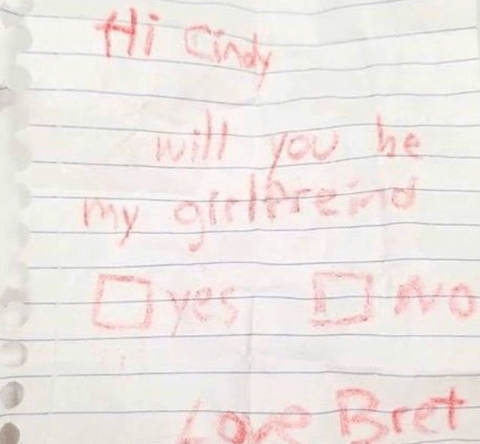 Hi Cindy
will you be
my girlfreind
yes No
Love Bret